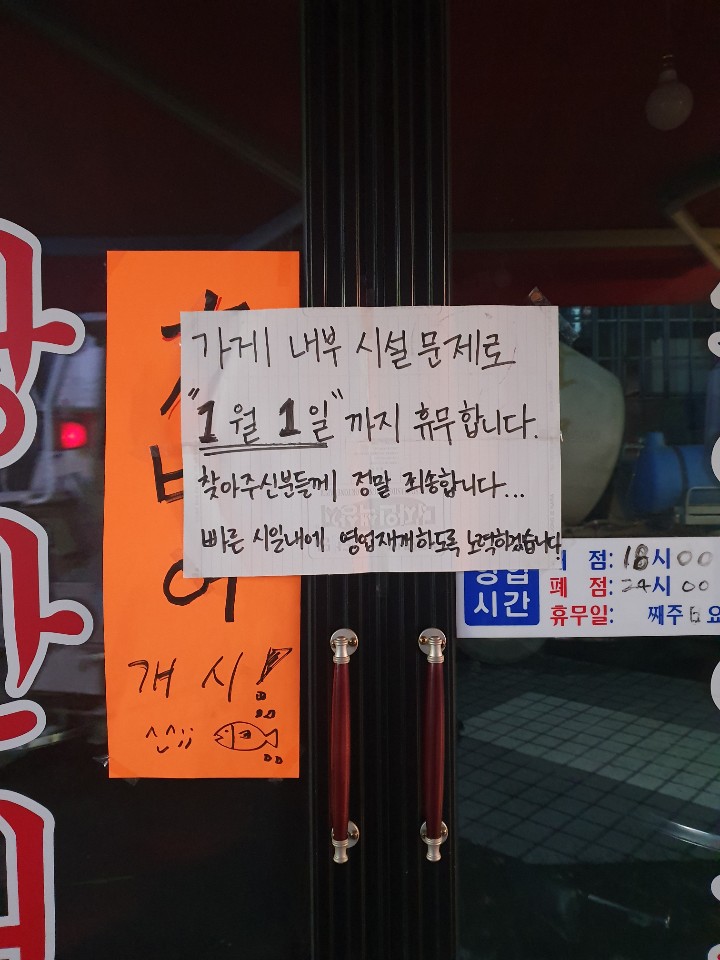 가게 내부 시설 문제로
"1월 1일"까지 휴무합니다.
찾아주신분들께 정말 죄송합니다...
빠른 시일내에 영업재개하도록 노력하겠습니다.
어
개시!
^^;;
영업
시간
점: 18시 00
폐 점: 24시 00
휴무일: 째주 일요